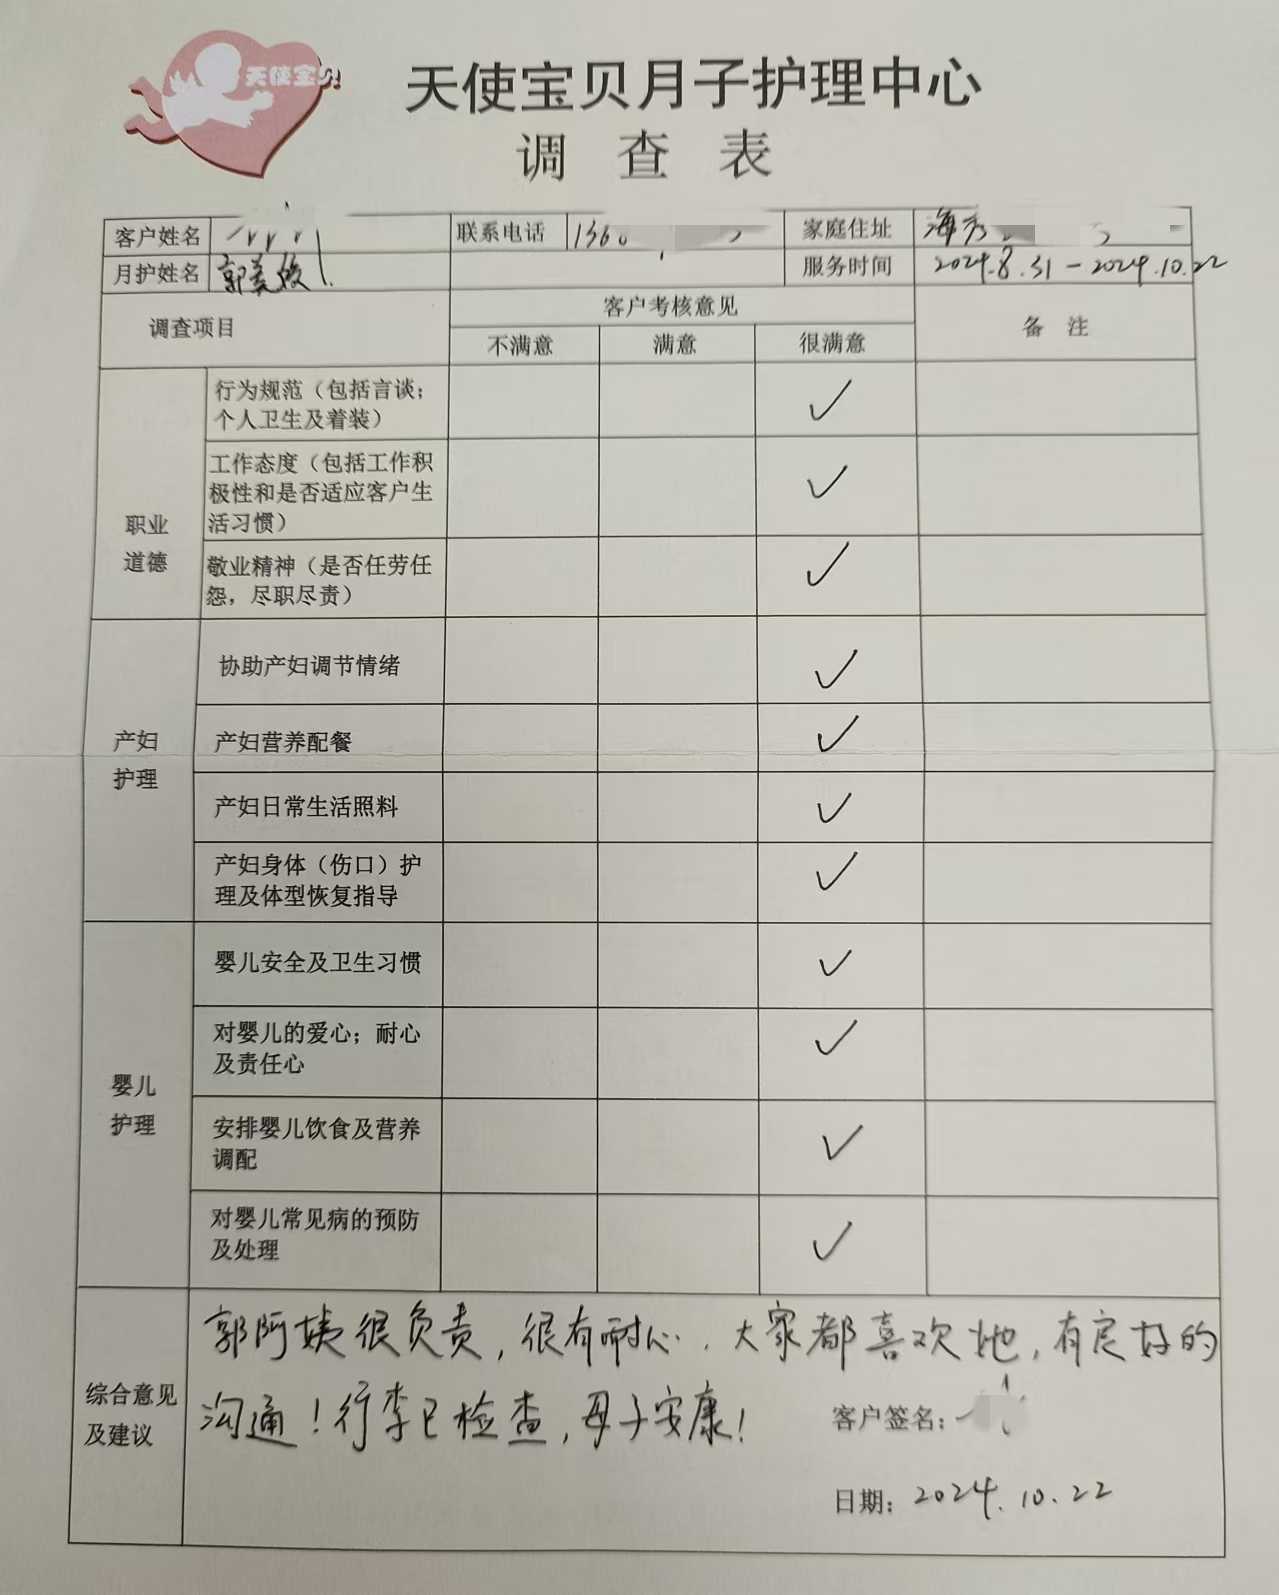 天使宝贝
天使宝贝月子护理中心
调 查 表
客户姓名 联系电话 136 家庭住址 海秀
月护姓名 郭美 服务时间 2024.8.31-2024.10.22
调查项目 客户考核意见 备 注
不满意 满意 很满意
职业
道德
行为规范（包括言谈；
个人卫生及着装） ✓
工作态度（包括工作积
极性和是否适应客户生
活习惯） ✓
敬业精神（是否任劳任
怨，尽职尽责） ✓
产妇
护理
协助产妇调节情绪 ✓
产妇营养配餐 ✓
产妇日常生活照料 ✓
产妇身体（伤口）护
理及体型恢复指导 ✓
婴儿
护理
婴儿安全及卫生习惯 ✓
对婴儿的爱心；耐心
及责任心 ✓
安排婴儿饮食及营养
调配 ✓
对婴儿常见病的预防
及处理 ✓
综合意见
及建议
郭阿姨很负责，很有耐心．大家都喜欢她，有良好的
沟通！行李已检查，母子安康！
客户签名：
日期：2024.10.22